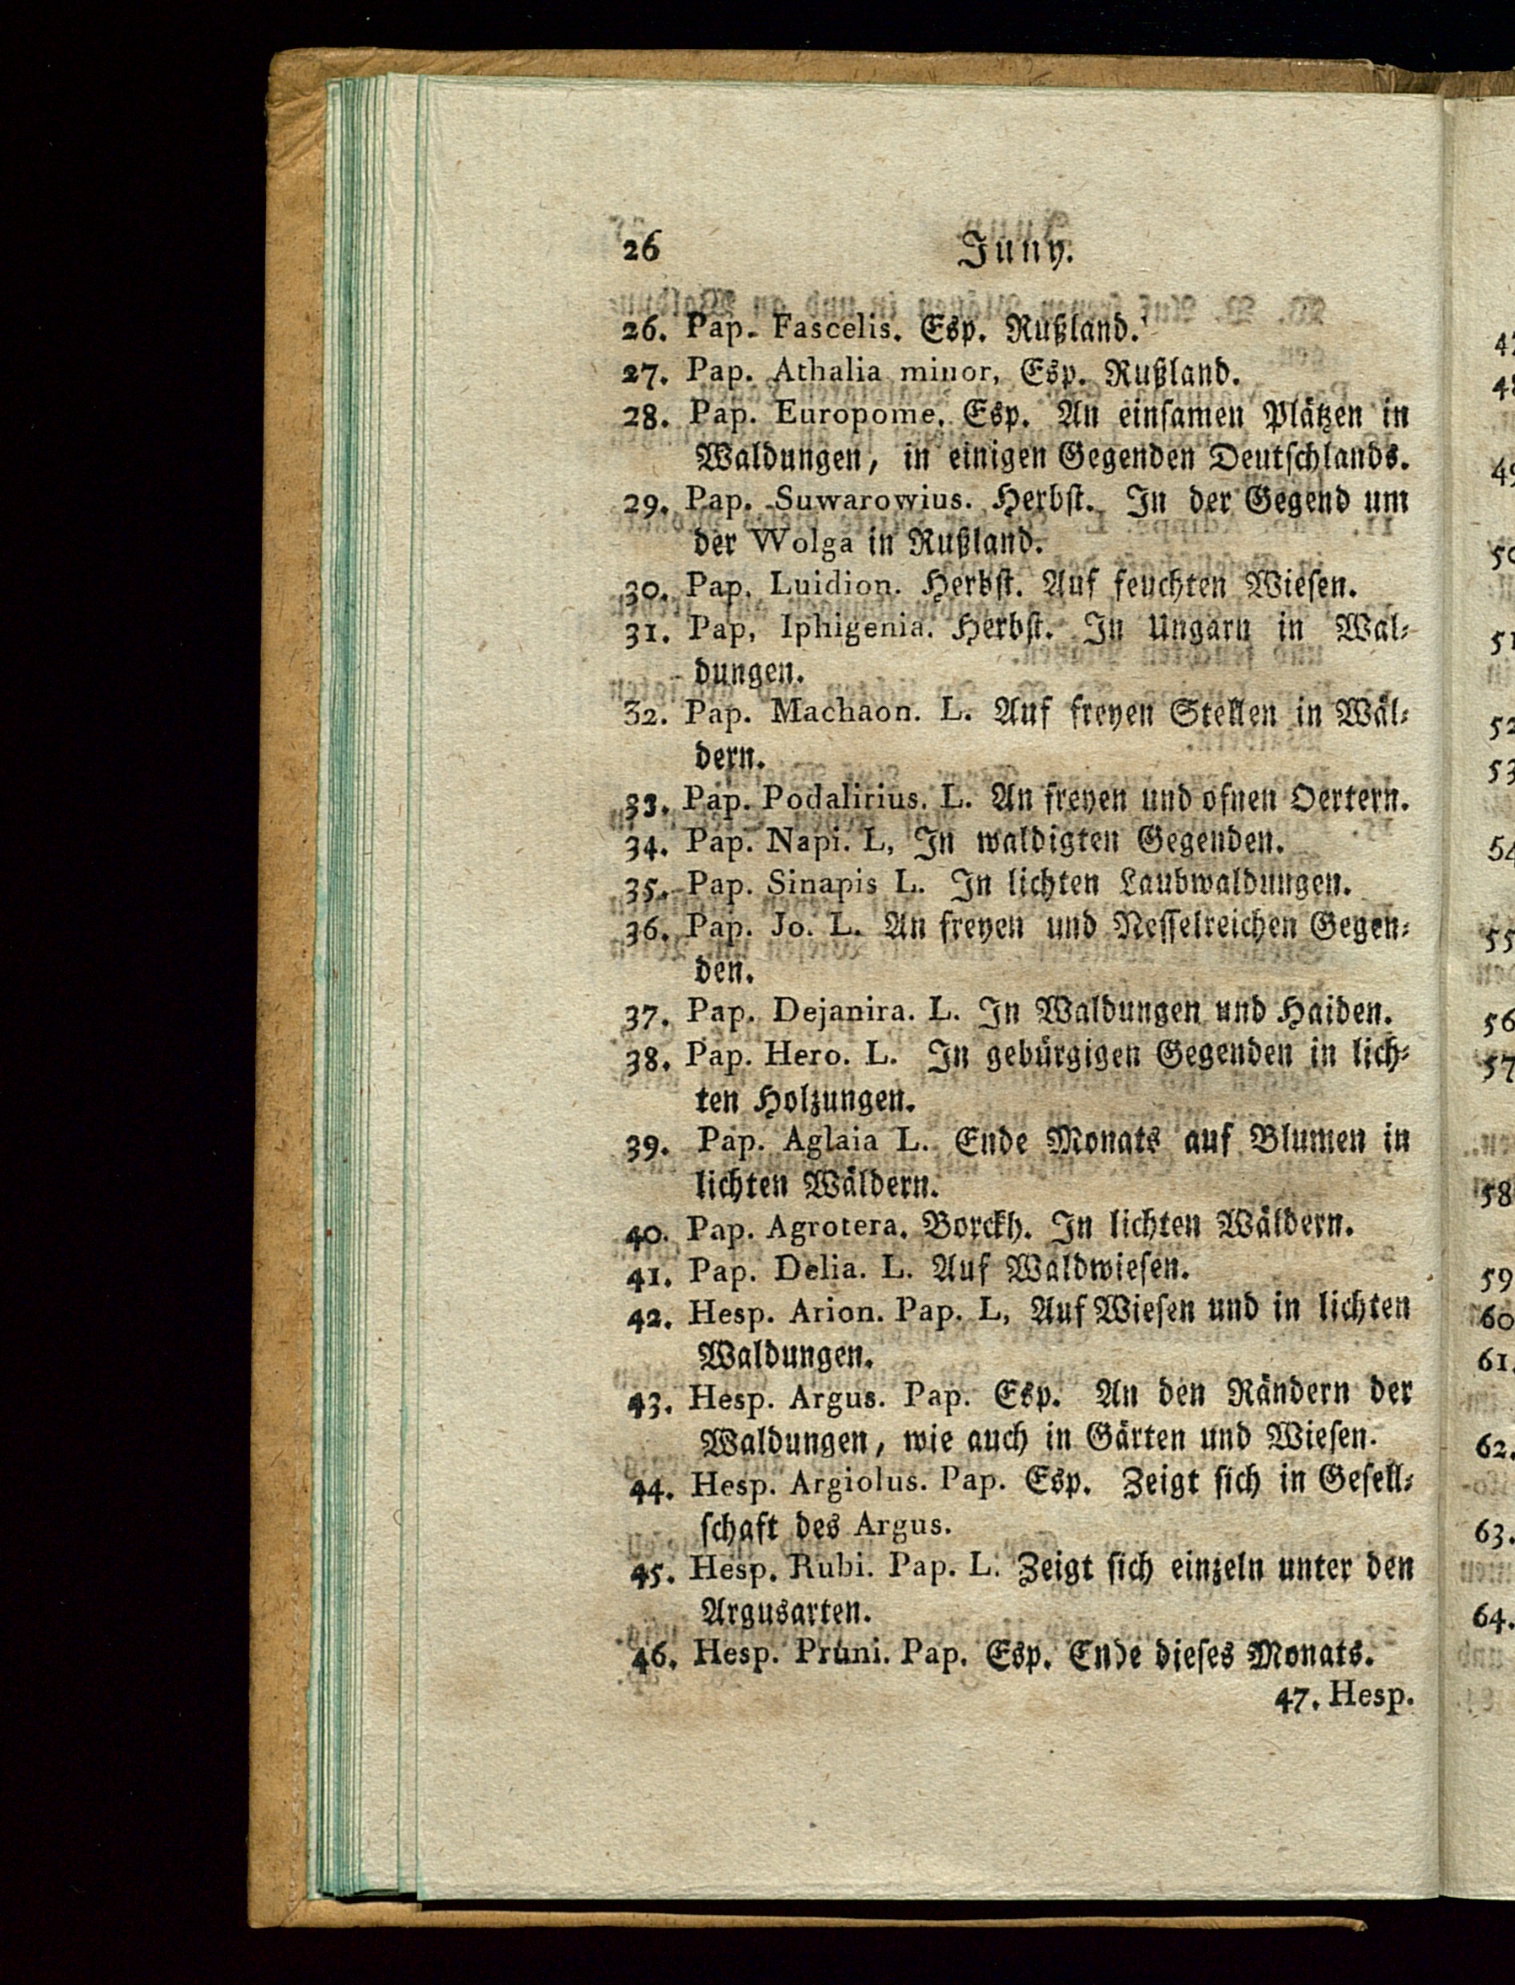 26 Juny.
26. Pap. Fascelis. Esp. Rußland.
27. Pap. Athalia minor, Esp. Rußland.
28. Pap. Europome. Esp. An einsamen Plätzen in
Waldungen, in einigen Gegenden Deutschlands.
29. Pap. Suwarowius. Herbst. In der Gegend um
der Wolga in Rußland.
30. Pap. Luidion. Herbst. Auf feuchten Wiesen.
31. Pap, Iphigenia. Herbst. In Ungarn in Wal-
dungen.
32. Pap. Machaon. L. Auf freyen Stellen in Wäl-
dern.
33. Pap. Podalirius. L. An freyen und ofnen Oertern.
34. Pap. Napi. L, In waldigten Gegenden.
35. Pap. Sinapis L. In lichten Laubwaldungen.
36. Pap. Jo. L. An freyen und Nesselreichen Gegen-
den.
37. Pap. Dejanira. L. In Waldungen und Haiden.
38. Pap. Hero. L. In gebürgigen Gegenden in lich-
ten Holzungen.
39. Pap. Aglaia L. Ende Monats auf Blumen in
lichten Wäldern.
40. Pap. Agrotera. Borckh. In lichten Wäldern.
41. Pap. Delia. L. Auf Waldwiesen.
42. Hesp. Arion. Pap. L, Auf Wiesen und in lichten
Waldungen.
43. Hesp. Argus. Pap. Esp. An den Rändern der
Waldungen, wie auch in Gärten und Wiesen.
44. Hesp. Argiolus. Pap. Esp. Zeigt sich in Gesell-
schaft des Argus.
45. Hesp. Rubi. Pap. L. Zeigt sich einzeln unter den
Argusarten.
46. Hesp. Pruni. Pap. Esp. Ende dieses Monats.
47. Hesp.
50
51
52
53
54
55
56
57
58
59
60
61.
62.
63.
64.